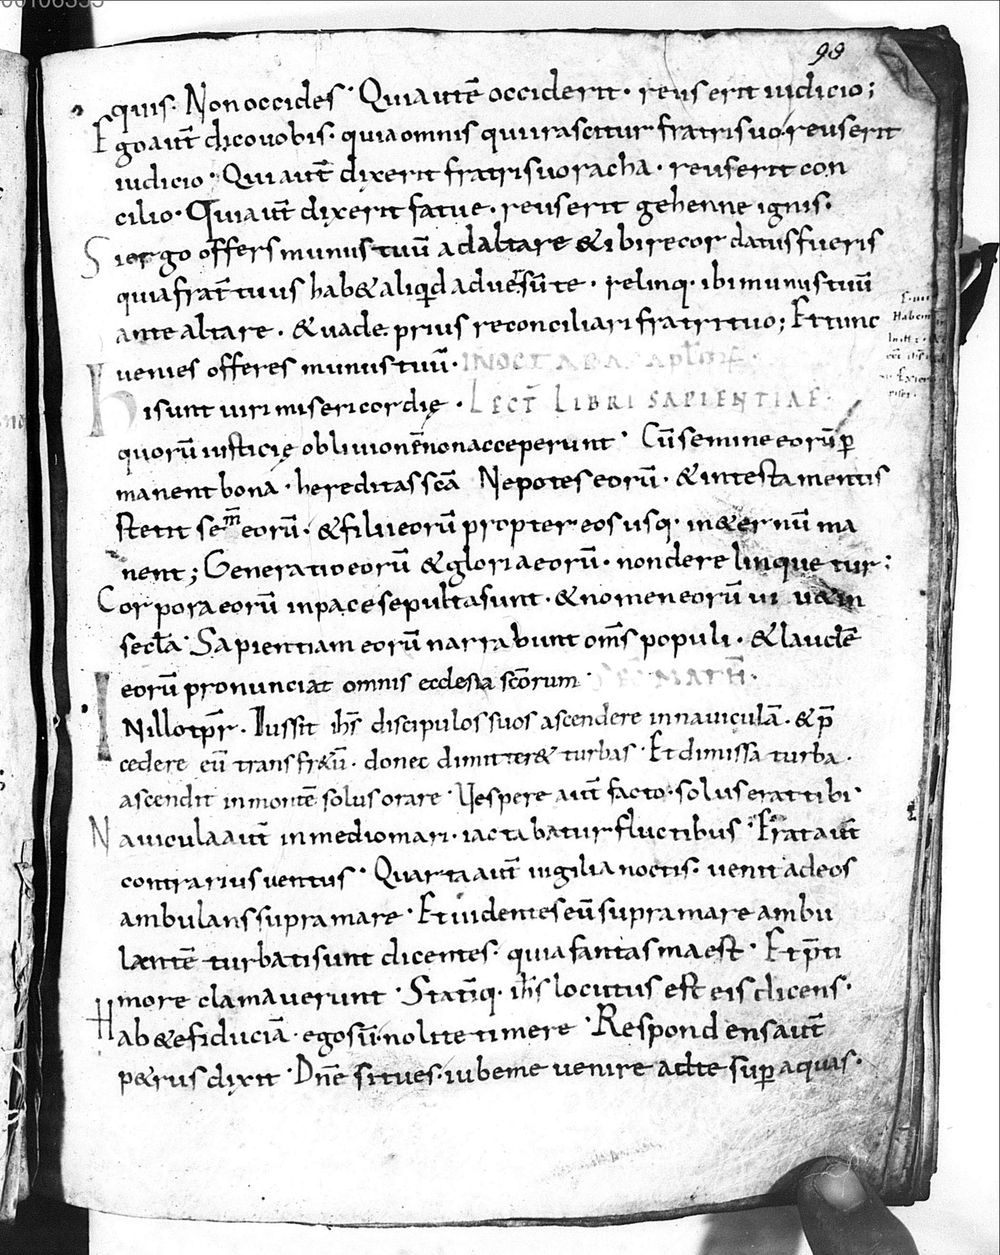 98
quis. Non occides. Qui autē occiderit. reus erit iudicio;
Ego aut̄ dico uobis. quia omnis qui irascitur fratri suo. reus erit
iudicio. Qui aut̄ dixerit fratri suo racha. reus erit con
cilio. Qui aut̄ dixerit fatue. reus erit gehenne ignis.
Si ergo offers munus tuū ad altare & ibi recordatus fueris
quia frat̄ tuus hab& aliqd aduersū te. relinq. ibi munus tuū
ante altare. & uade prius reconciliari fratri tuo; Et tunc
ueniens offeres munus tuū. IN OCTABA APL̄OR̄.
Hi sunt uiri misericordię. LECT̄ LIBRI SAPIENTIAE.
quorū iusticię obliuionē non acceperunt. Cū semine eorū p
manent bona. hereditas scā Nepotes eorū. & in testamentis
stetit sem̄ eorū. & filii eorū propter eos usq. in &ernū ma
nent; Generatio eorū & gloria eorū. non derelinquetur:
Corpora eorū in pace sepulta sunt. & nomen eorū ui u& in
secl̄a. Sapientiam eorū narrabunt om̄s populi. & laudē
eorū pronunciat omnis ecclesia scōrum. SEC̄ MATH̄.
IN illo tp̄r. Iussit ih̄s discipulos suos ascendere in nauiculā. & p̄
cedere eū trans fr&ū. donec dimitter& turbas. Et dimissa turba.
ascendit in montē solus orare. Uespere aut̄ facto. solus erat ibi.
Nauicula aut̄ in medio mari. iactabatur fluctibus. Erat aut̄
contrarius uentus. Quarta aut̄ uigilia noctis. uenit ad eos
ambulans supra mare. Et uidentes eū supra mare ambu
lantē turbati sunt dicentes. quia fantasma est. Et p̄ ti
more clamauerunt. Statīq. ih̄s locutus est eis dicens.
Hab&e fiduciā. ego sū. nolite timere. Respondens aut̄
p&rus dixit. Dn̄e si tu es. iube me uenire ad te sup aquas.